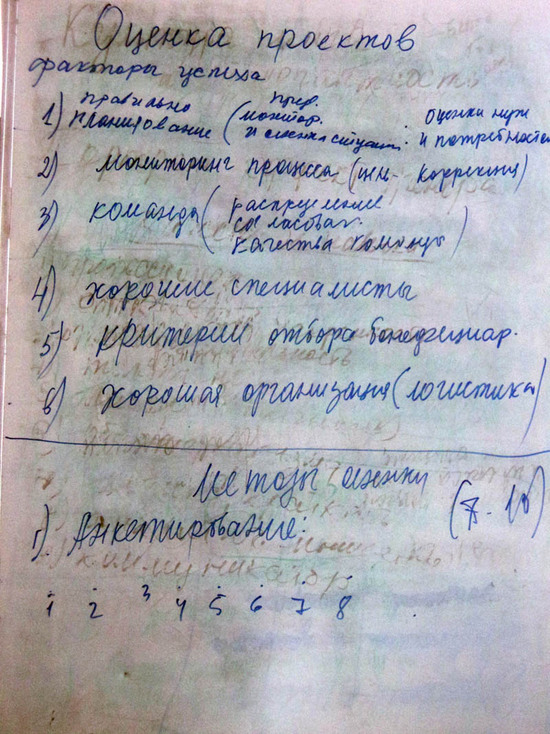 Оценка проектов
факторы успеха
1) правильно планирование (пред. монитор. и оценка ситуации . оценки нужд и потребностей
2) мониторинг процесса (цель - коррекция)
3) команда (распределение
согласован.
качества команды)
4) хорошие специалисты
5) критерии отбора бенефициар.
6) хорошая организация (логистика)
Методы оценки
1). Анкетирование: (7-10)
1 2 3 4 5 6 7 8